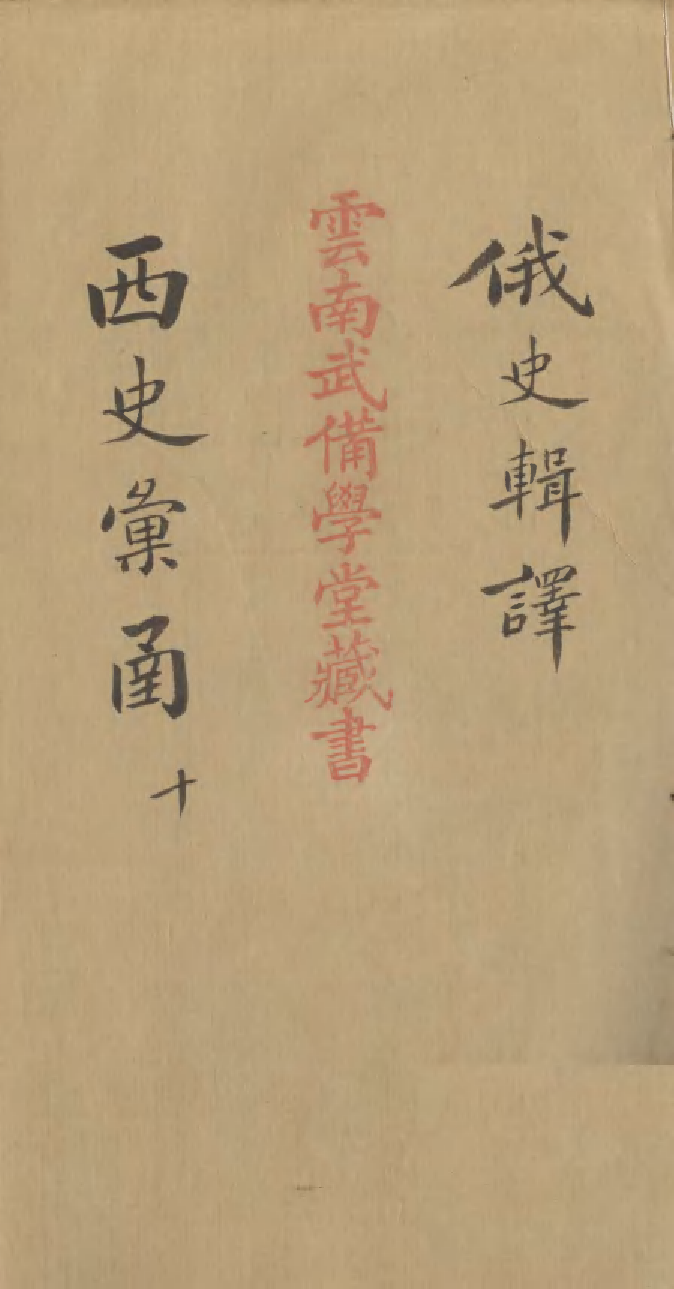 俄史輯譯
雲南武備學堂藏書
西史彙圅十